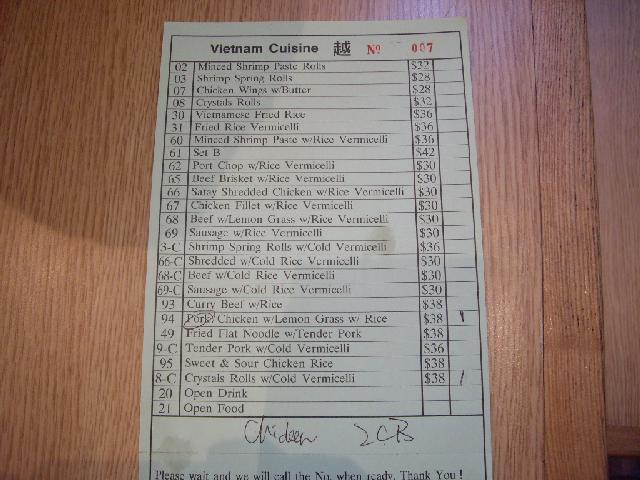 Vietnam Cuisine 越 № 007
02 Minced Shrimp Paste Rolls $32
03 Shrimp Spring Rolls $28
07 Chicken Wings w/Butter $28
08 Crystals Rolls $32
30 Vietnamese Fried Rice $36
31 Fried Rice Vermicelli $36
60 Minced Shrimp Paste w/Rice Vermicelli $36
61 Set B $42
62 Port Chop w/Rice Vermicelli $30
65 Beef Brisket w/Rice Vermicelli $30
66 Satay Shredded Chicken w/Rice Vermicelli $30
67 Chicken Fillet w/Rice Vermicelli $30
68 Beef w/Lemon Grass w/Rice Vermicelli $30
69 Sausage w/Rice Vermicelli $30
3-C Shrimp Spring Rolls w/Cold Vermicelli $36
66-C Shredded w/Cold Rice Vermicelli $30
68-C Beef w/Cold Rice Vermicelli $30
69-C Sausage w/Cold Rice Vermicelli $30
93 Curry Beef w/Rice $38
94 Pork Chicken w/Lemon Grass w/ Rice $38 1
49 Fried Flat Noodle w/Tender Pork $38
9-C Tender Pork w/Cold Vermicelli $36
95 Sweet & Sour Chicken Rice $38
8-C Crystals Rolls w/Cold Vermicelli $38 /
20 Open Drink
21 Open Food
2CB
Please wait and we will call the No. when ready. Thank You !